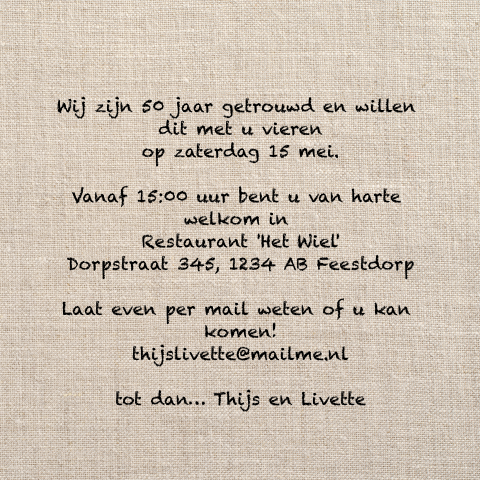 Wij zijn 50 jaar getrouwd en willen
dit met u vieren
op zaterdag 15 mei.
Vanaf 15:00 uur bent u van harte
welkom in
Restaurant 'Het Wiel'
Dorpstraat 345, 1234 AB Feestdorp
Laat even per mail weten of u kan
komen!
thijslivette@mailme.nl
tot dan... Thijs en Livette